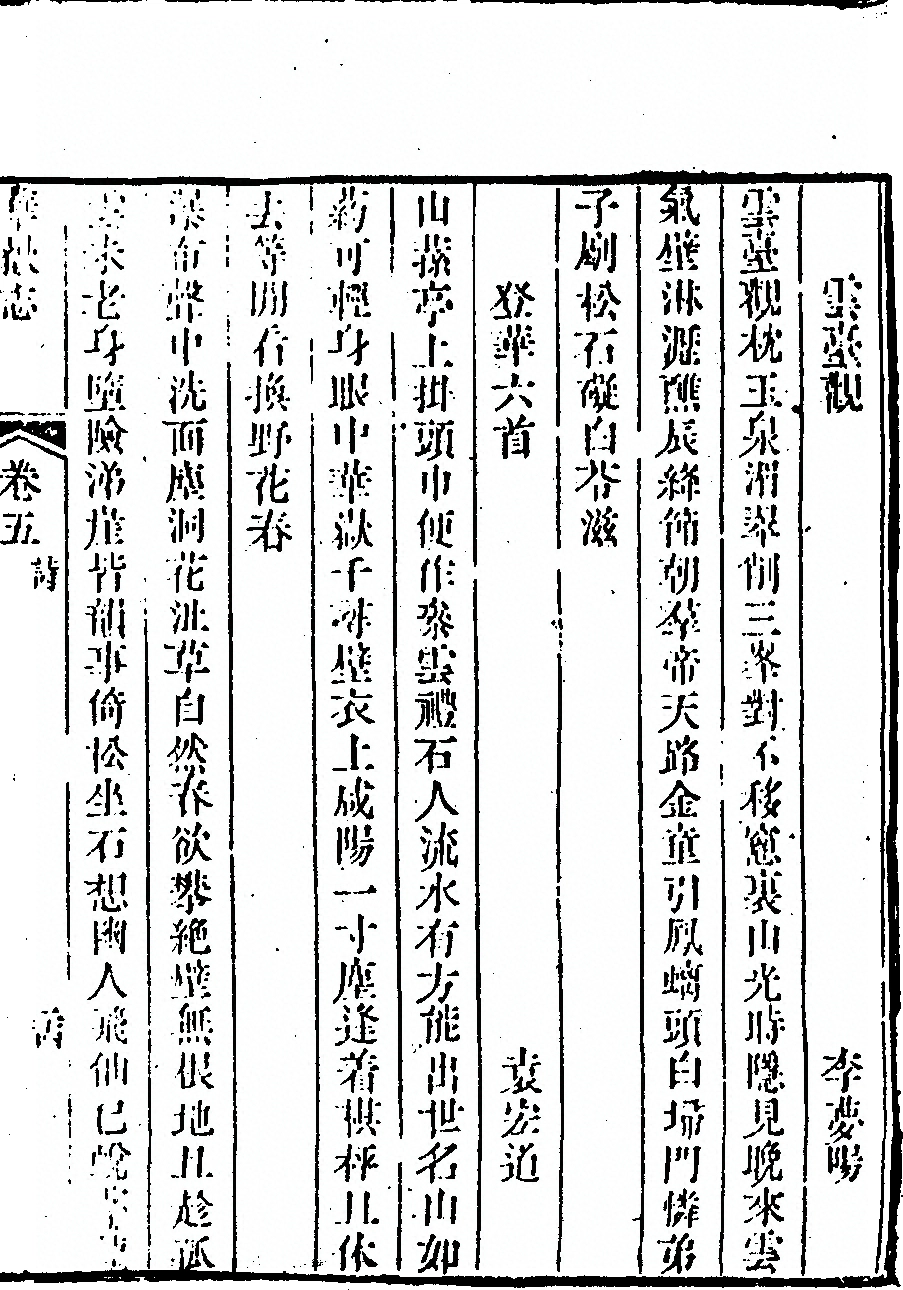 雲臺觀 李夢陽
雲臺觀枕玉泉湄翠削三峯對不移窓裏山光時隱見晚來雲
氣壁淋漓醮辰絳節朝羣帝天路金童引鳳螭頭白埽門憐弟
子劚松石礙白苓滋
登華六首 袁宏道
山蓀亭上掛頭巾便作參雲禮石人流水有方能出世名山如
藥可輕身眼中華嶽千尋壁衣上咸陽一寸塵逢着棋枰且休
去等閒看換野花春
瀑布聲中洗面塵洞花沚草自然春欲攀絶壁無佷地且趁孤
雲未老身墮險涕崖皆韻事倚松坐石想幽人飛仙已蛻
華嶽志 卷五 詩